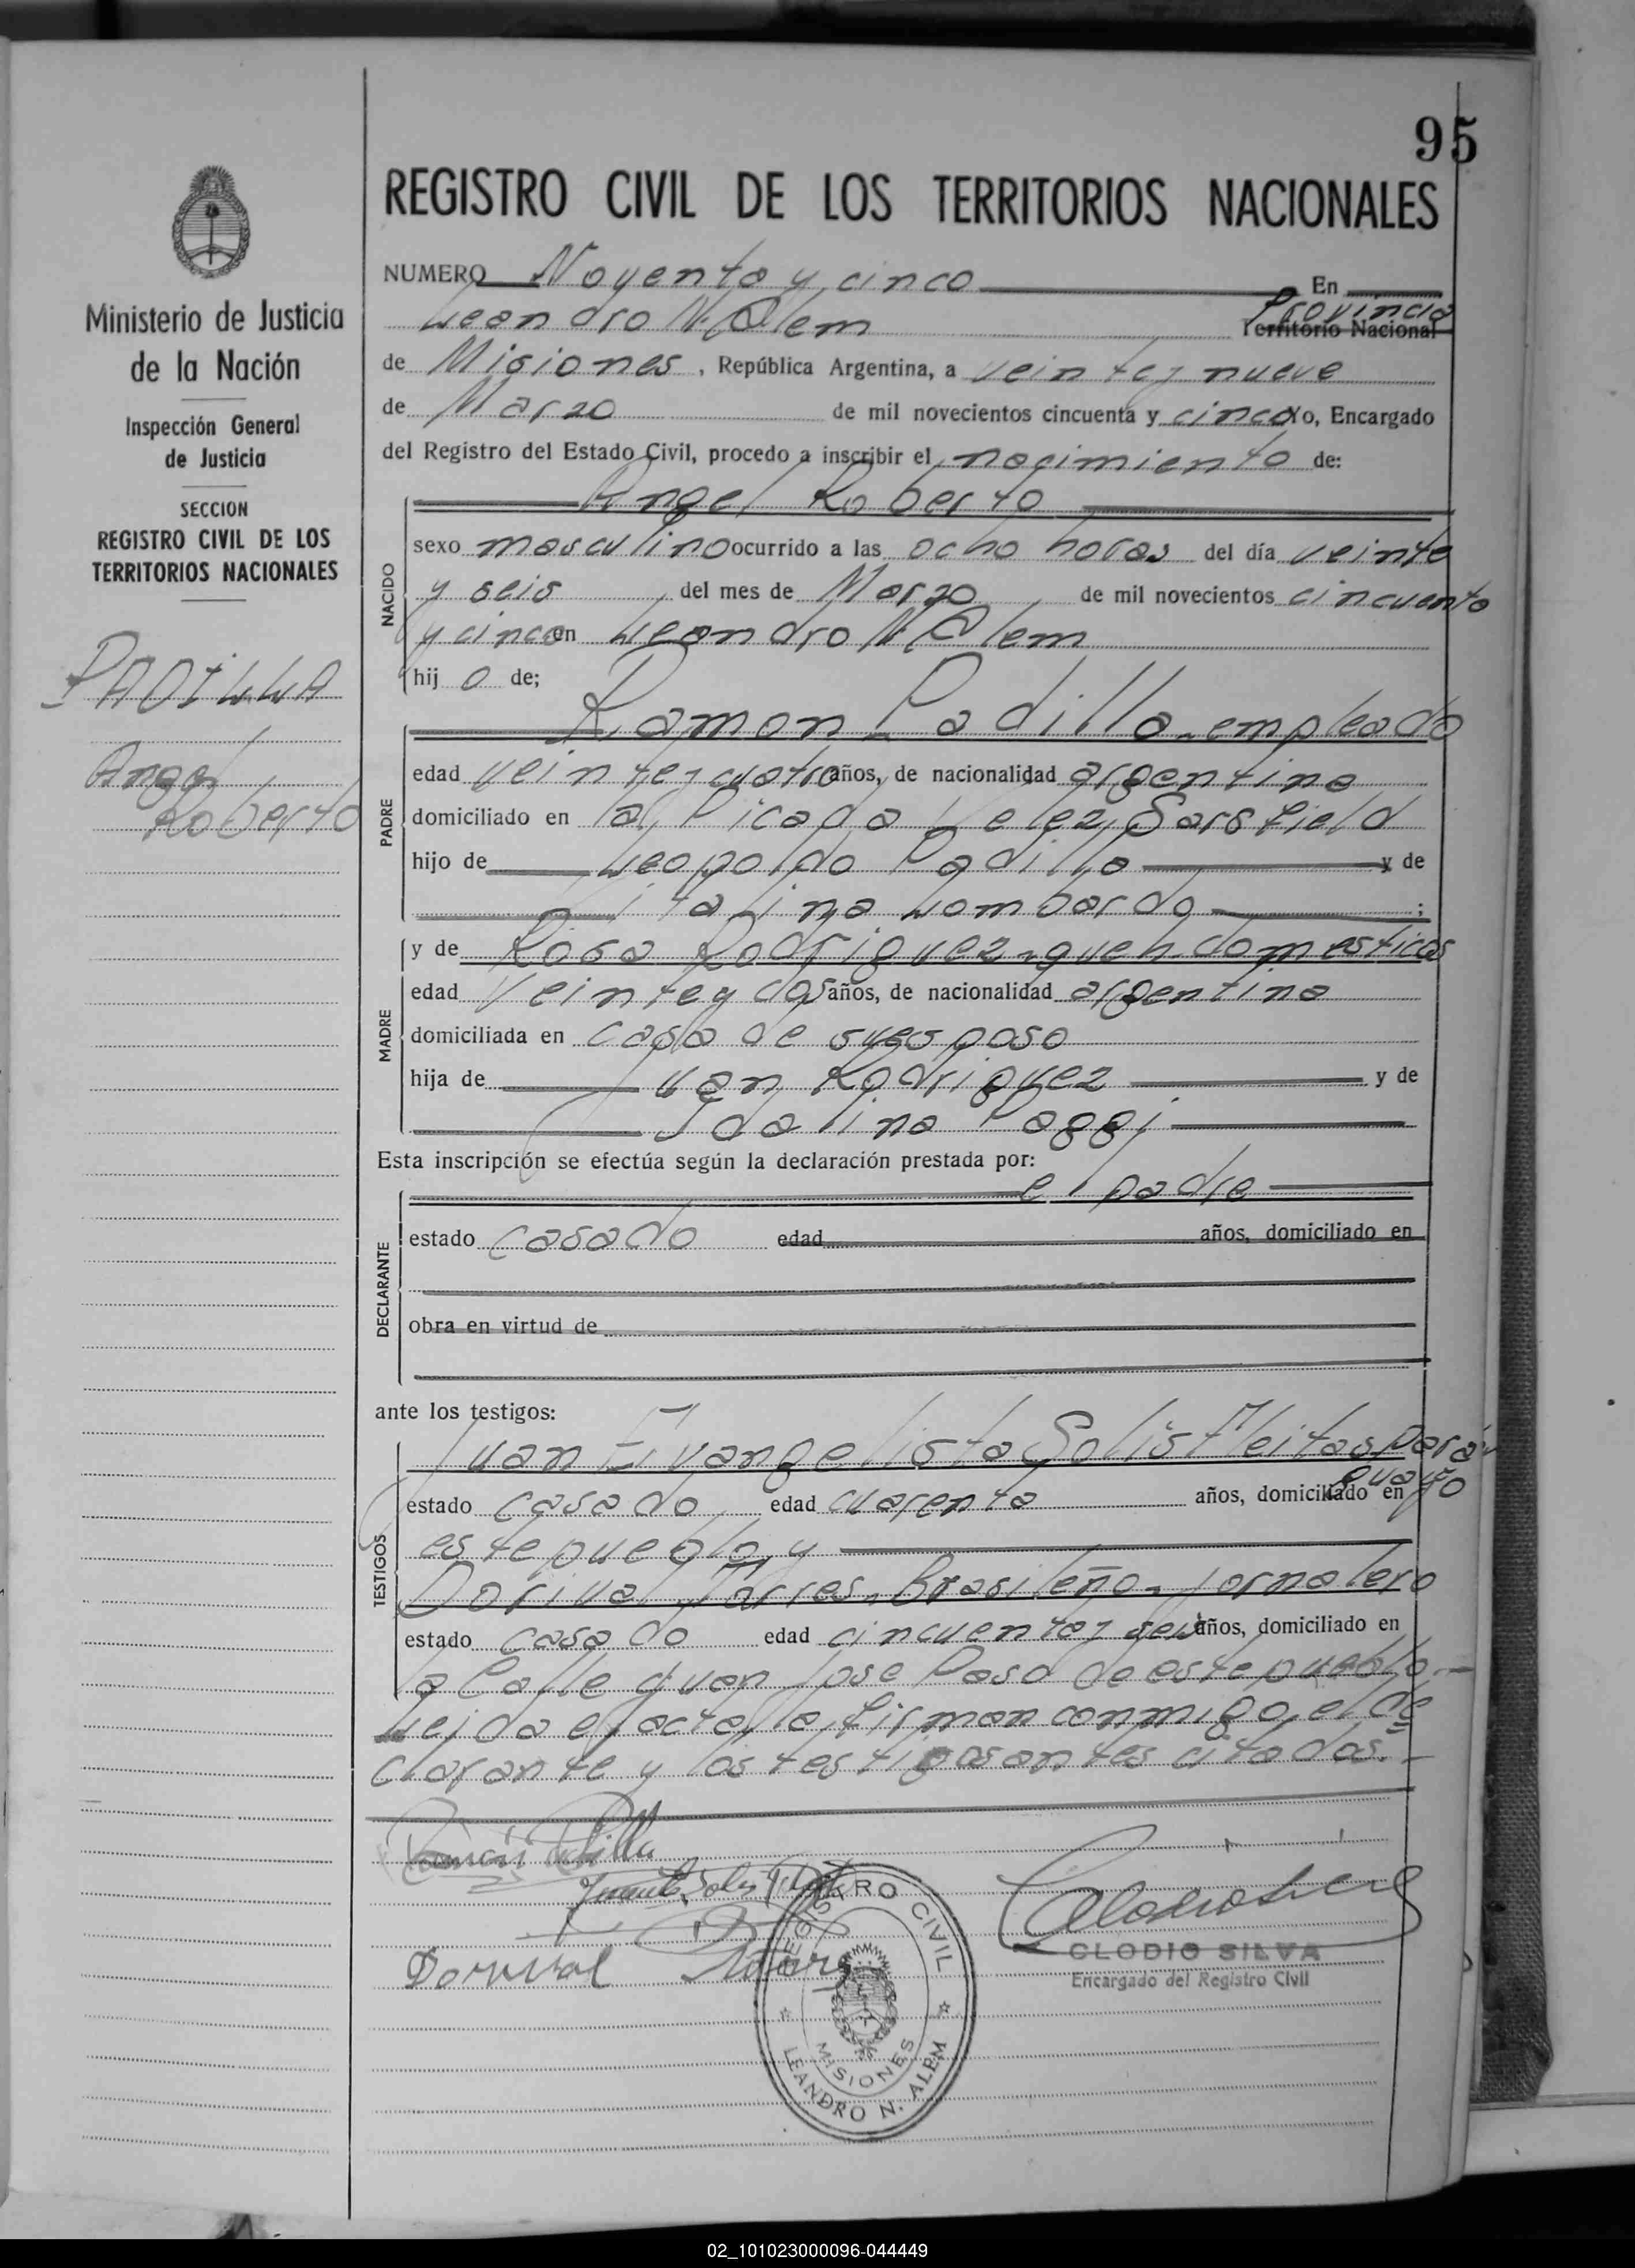 95
REGISTRO CIVIL DE LOS TERRITORIOS NACIONALES
Ministerio de Justicia
de la Nación
Inspección General
de Justicia
SECCION
REGISTRO CIVIL DE LOS
TERRITORIOS NACIONALES
PADILLA
Angel
Roberto
NUMERO Noventa y cinco En
Leandro N. Alem Provincia
Territorio Nacional
de Misiones, República Argentina, a veintey nueve
de Marzo de mil novecientos cincuenta y cinco Yo, Encargado
del Registro del Estado Civil, procedo a inscribir el nacimiento de:
Angel Roberto
NACIDO
sexo masculino ocurrido a las ocho horas del día veinte
y seis del mes de Marzo de mil novecientos cincuenta
y cinco en Leandro N. Alem
hij o de;
PADRE
Ramon Padilla. empleado
edad veinteycuatro años, de nacionalidad argentina
domiciliado en la Picada Velez Sarsfield
hijo de Leopoldo Padilla y de
Lombardo ;
MADRE
y de Rosa Rodriguez. queh. domesticos
edad Veintey dos años, de nacionalidad argentina
domiciliada en casa de su esposo
hija de Juan Rodriguez y de
Idalina Poggi
Esta inscripción se efectúa según la declaración prestada por:
el padre
DECLARANTE
estado casado edad años, domiciliado en
obra en virtud de
ante los testigos:
TESTIGOS
Juan Evangelista Solis Fleitas para
guayo
estado casado edad cuarenta años, domiciliado en
este pueblo, y
Dorival Torres. Brasileño. jornalero
estado casado edad cincuentay seis años, domiciliado en
la Calle Juan Jose Paso de este pueblo.-
Leida el acta, la firman conmigo, el de
clarante y los testigos antes citados.-
Ramón Padilla
Dorival
REGISTRO CIVIL
MISIONES
LEANDRO N. ALEM
CLODIO SILVA
Encargado del Registro Civil
02_101023000096-044449